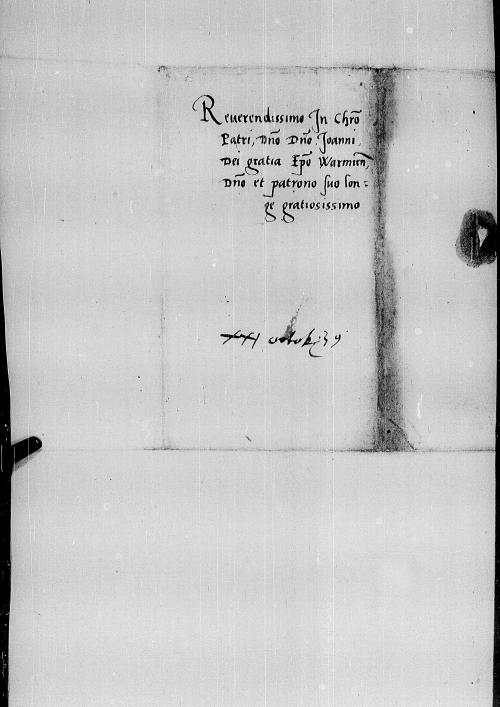 Reuerendissimo In Chro̅
Patri, Dn̅o Dn̅o Ioanni
Dei gratia Ep̅o Warmien̅,
Dn̅o et patrono suo lon=
ge gratiosissimo
XXI octob 39